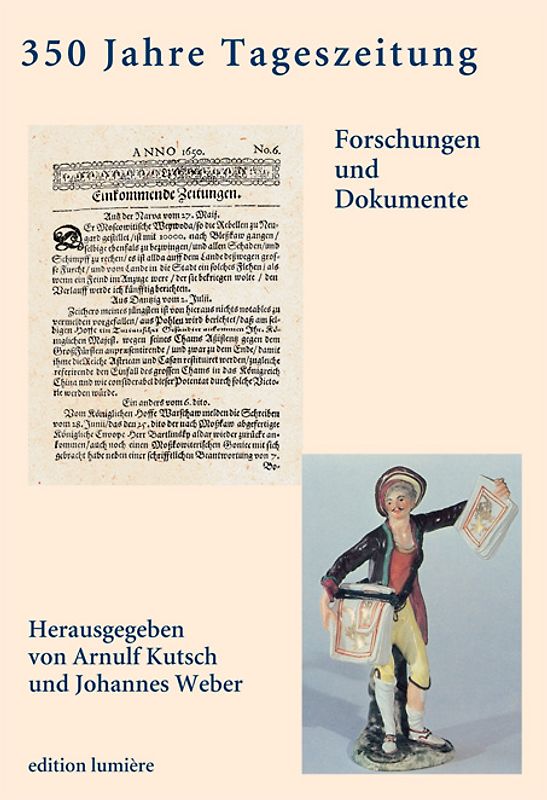 350 Jahre Tageszeitung
Forschungen
und
Dokumente
ANNO 1650. No. 6.
Einkommende Zeitungen.
Auß der Narva vom 27. Maij.
Er Moscowitische Weywoda/so die Rebellen zu Neu-
gard gestellet/ist mit 10000. nach Pleßkaw gangen/
selbige ebenfals zu bezwingen/und allen Schaden/und
Schimpff zu rechen/es ist allda auff dem Lande deßwegen gros-
se Furcht/und vom Lande in die Stadt ein solches Flehen/als
wenn ein Feind im Anzuge were/der sie bekriegen wolte/den
Verlauff werde ich künfftig berichten.
Aus Dantzig vom 2. Julii.
Zeithero meines jüngsten ist von hieraus nichts notables zu
vermelden vorgefallen/aus Pohlen wird berichtet/daß am sel-
bigen Hoffe ein Tartarischer Gesandter ankommen Ihr. Kö-
niglichen Majest. wegen seines Chams Assistentz gegen dem
GroßFürsten
referirende den Einfall des grossen Chams in das Königreich
China und wie considerabel dieser Potentat durch solche Victo-
rie werden würde.
Ein anders vom 6. dito.
Vom Königlichen Hoffe Warschaw melden die Schreiben
vom 28. Junii/das den 25. dito der nach Moßkaw abgefertigte
Königliche Envoye Herr Bartlinsky aldar wieder zurücke an-
kommen/auch noch einen Moßkowiterischen Goniec mit sich
gebracht habe neben einer schrifftlichen Beantwortung von 7.
Bo-
Herausgegeben
von Arnulf Kutsch
und Johannes Weber
edition lumière